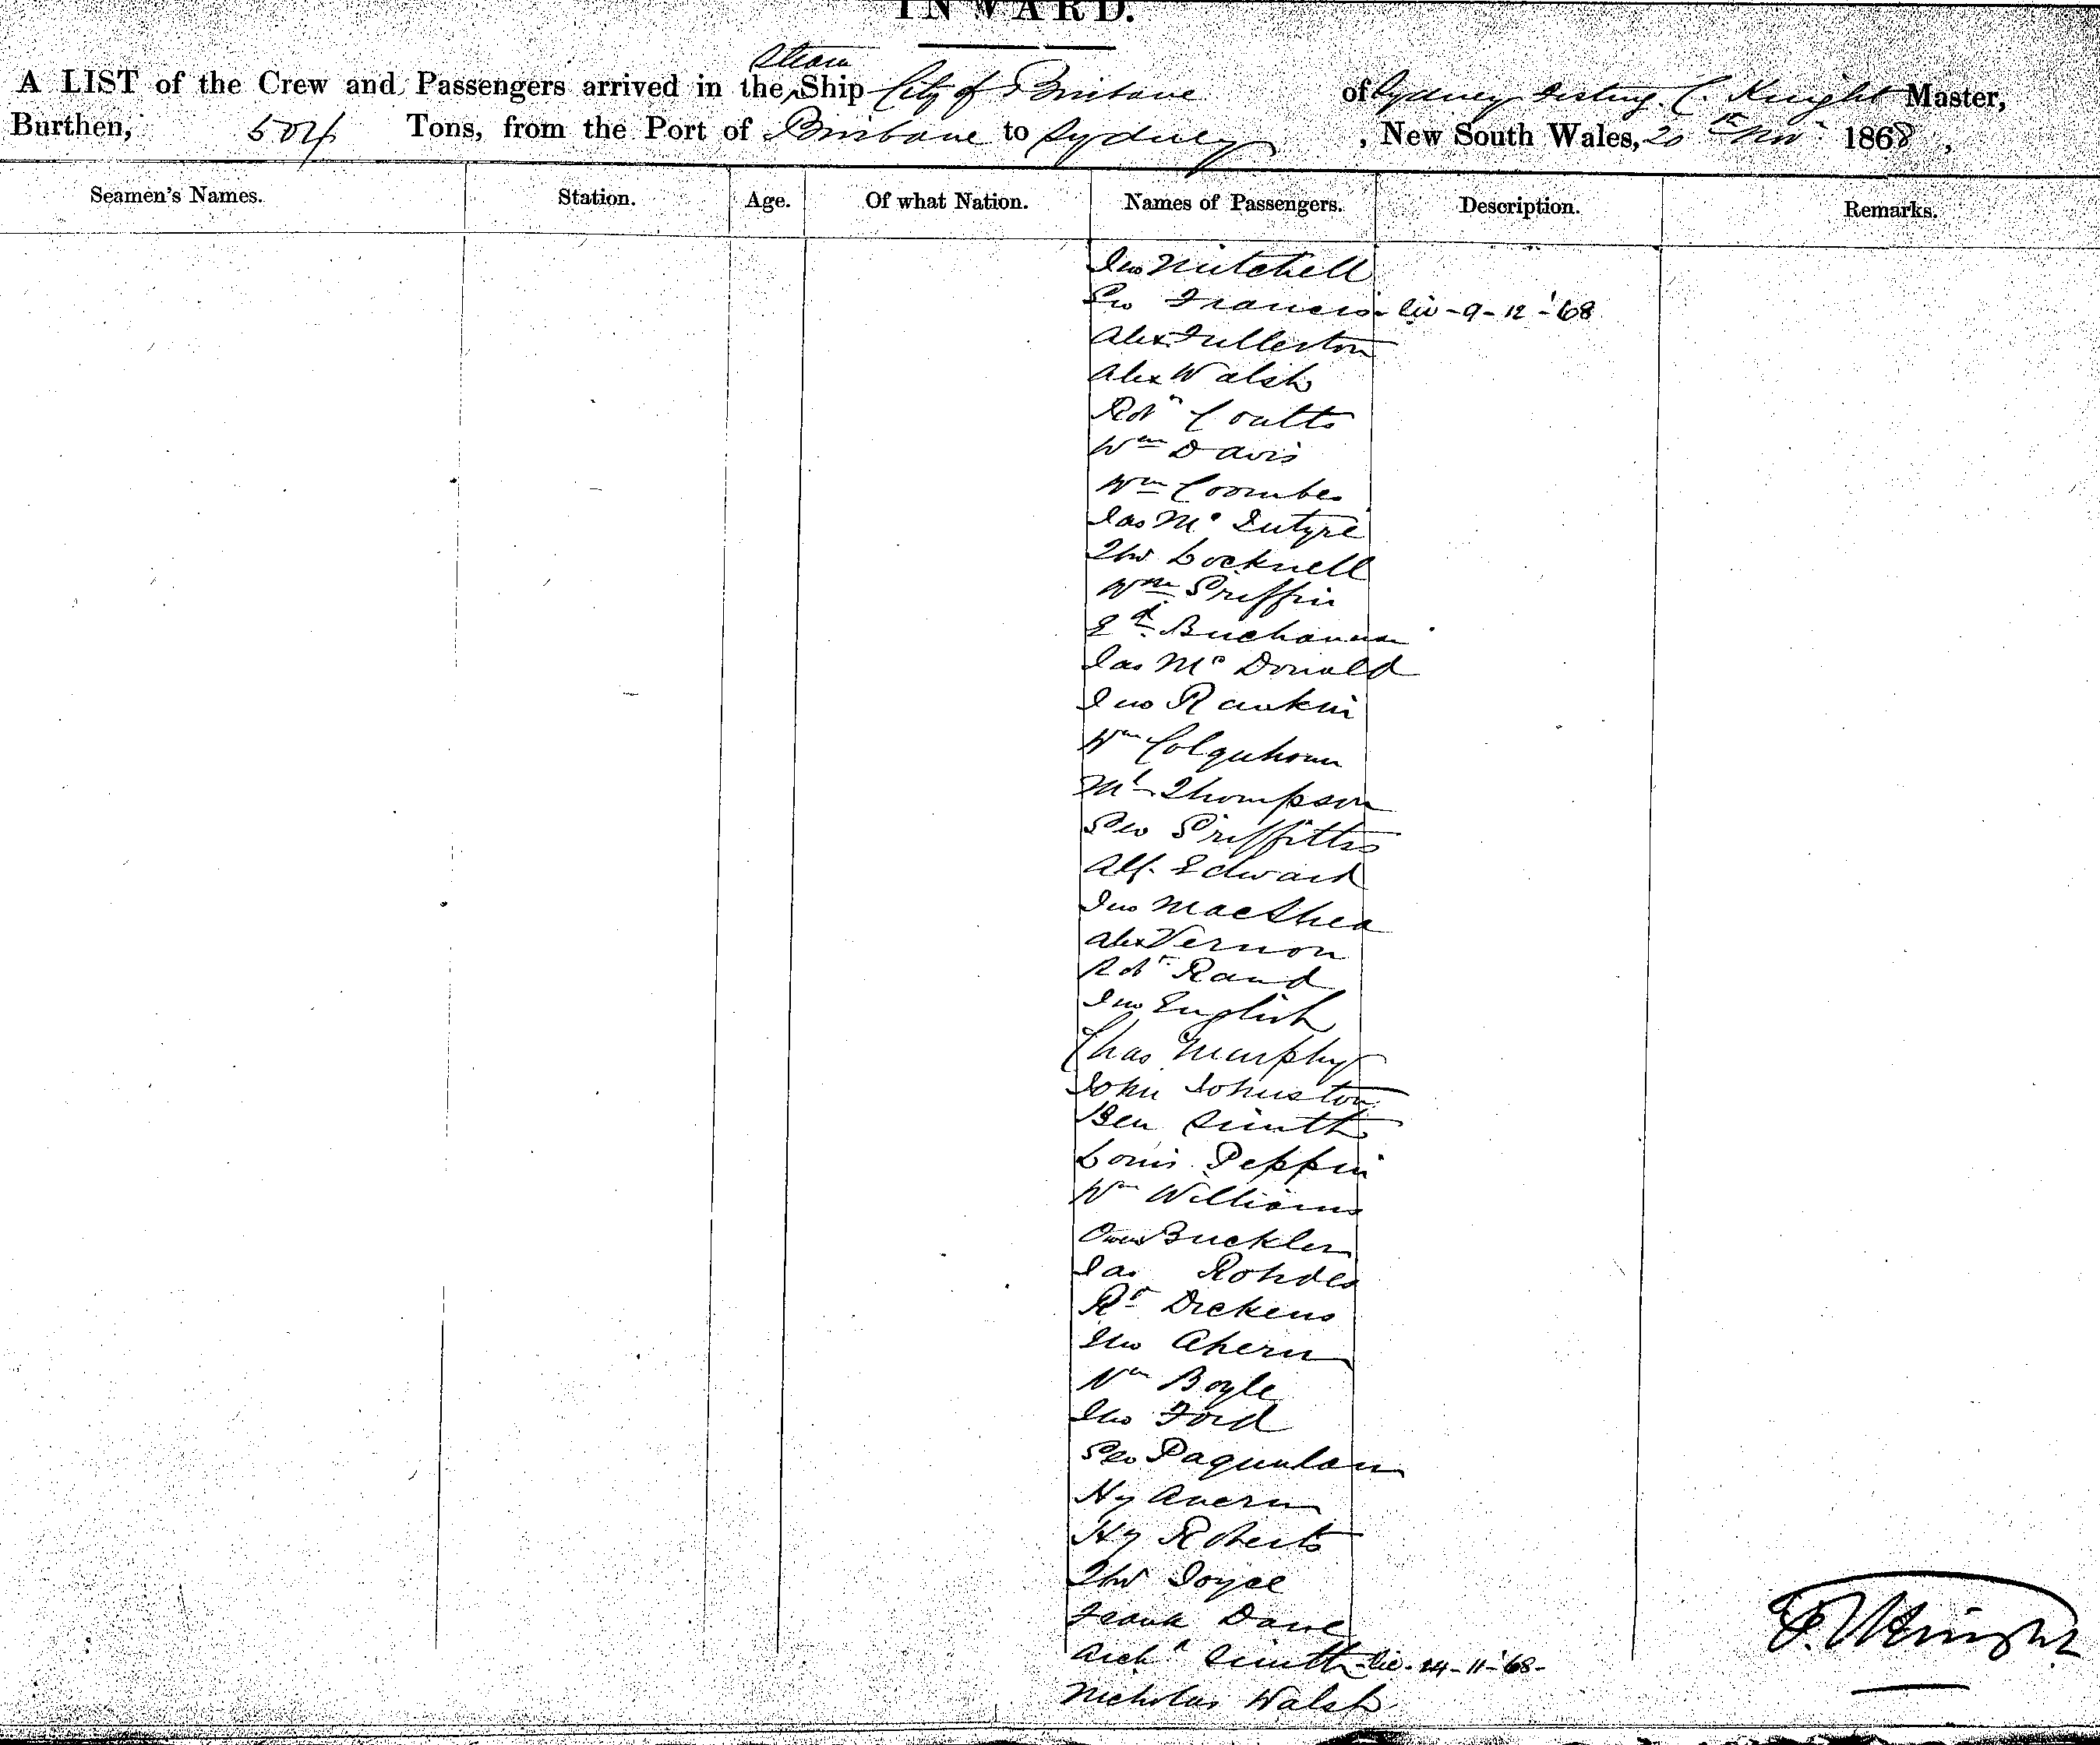 INWARD.
A LIST of the Crew and Passengers arrived in the ^ Steam Ship City of Brisbane of Sydney C. Knight Master,
Burthen, 504 Tons, from the Port of Brisbane to Sydney, New South Wales, 20th Nov 1868,
Seamen's Names. Station. Age. Of what Nation. Names of Passengers. Description. Remarks.
Jno Mitchell
Geo Francis - liv - 9 - 12 - '68
Alex Fullerton
Alex Walsh
Robt Coutts
Wm Davis
Wm Coombes
Jas Mc Intyre
Thos Locknell
Wm Griffin
Ed Buchannan
Jas Mc Donald
Jno Rankin
Wm Colquhoun
Ml Thompson
Geo Griffiths
Alf. Edward
Jno MacShea
Alex Vernon
Robt Rand
Jno English
Chas Murphy
John Johnston
Ben Smith
Louis Peppin
Wm Williams
Owen Buckler
Jas Rohdes
Rd Dickens
Jno Ahern
Wm Boyle
Jno Ford
Geo
Hy Avern
Hy Roberts
Thos Joyce
Frank Dane
Archd Smith - liv - 24 - 11 - '68 -
Nicholas Walsh
Knight